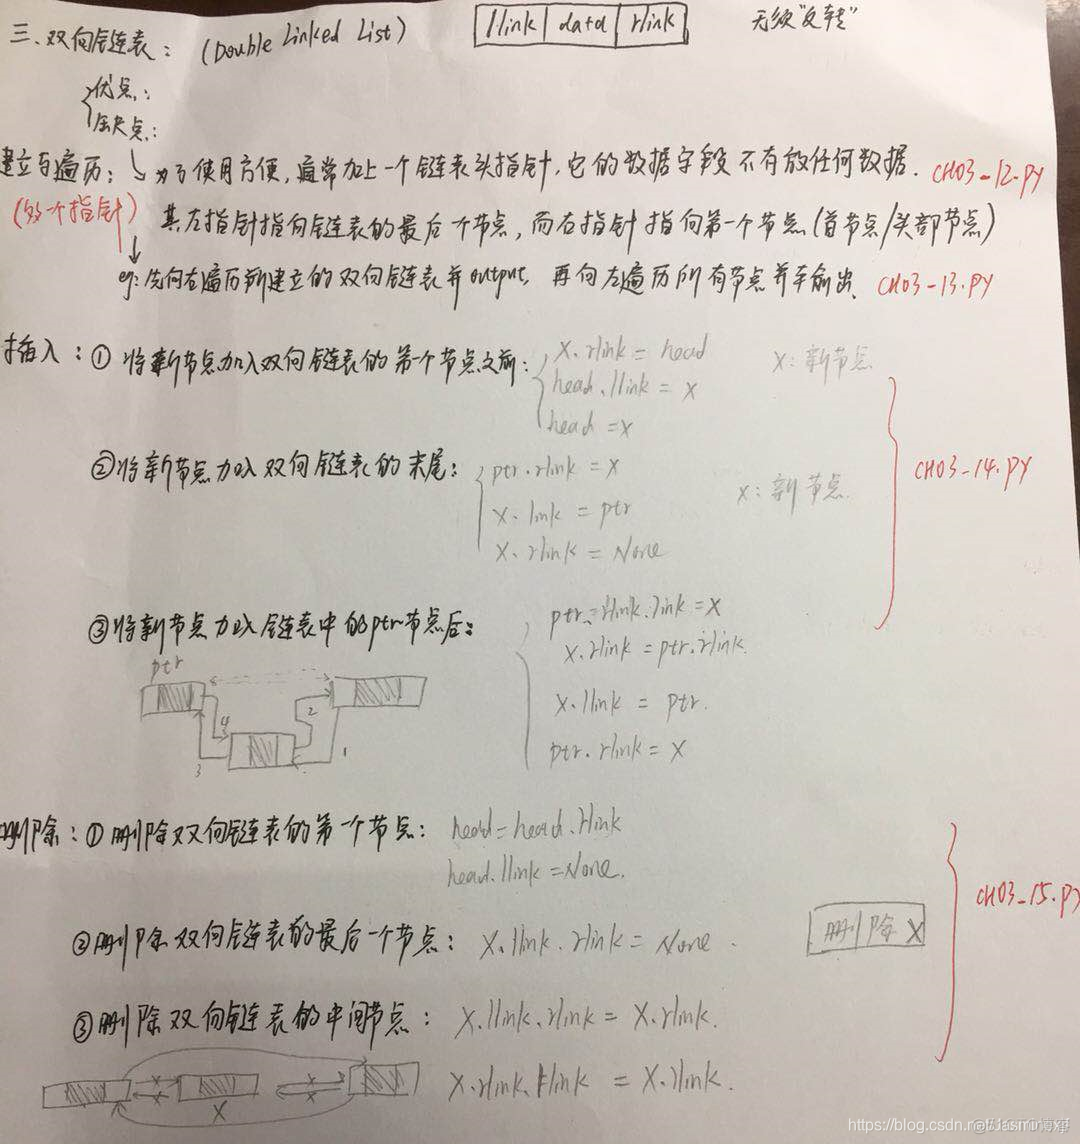 三、双向链表: (Double Linked List) llink data rlink 无须"反转"
优点:
缺点:
建立与遍历: 为了使用方便,通常加上一个链表头指针,它的数据字段不存放任何数据. CH03-12.py
(多一个指针) 其左指针指向链表的最后个节点,而右指针指向第一个节点(首节点/头部节点)
eg: 先向右遍历所建立的双向链表并output, 再向左遍历所有节点并输出. CH03-13.py
插入: ① 将新节点加入双向链表的第一个节点之前: x.rlink = head x: 新节点
head.llink = x
head = x
②将新节点加入双向链表的末尾: ptr.rlink = x x: 新节点.
x.link = ptr
x.rlink = None
CH03-14.py
③将新节点加入链表中的ptr节点后: ptr.rlink.link = x
x.rlink = ptr.rlink.
x.llink = ptr.
ptr.rlink = x
ptr
4 2
3 1
删除: ① 删除双向链表的第一个节点: head = head.rlink
head.llink = None.
CH03-15.py
②删除双向链表的最后一个节点: x.llink.rlink = None. 删除 x
③删除双向链表的中间节点: x.llink.rlink = x.rlink.
x.rlink.llink = x.rlink.
x x
x x
X
https://blog.csdn.net/Jasminexjf
@51CTO博客